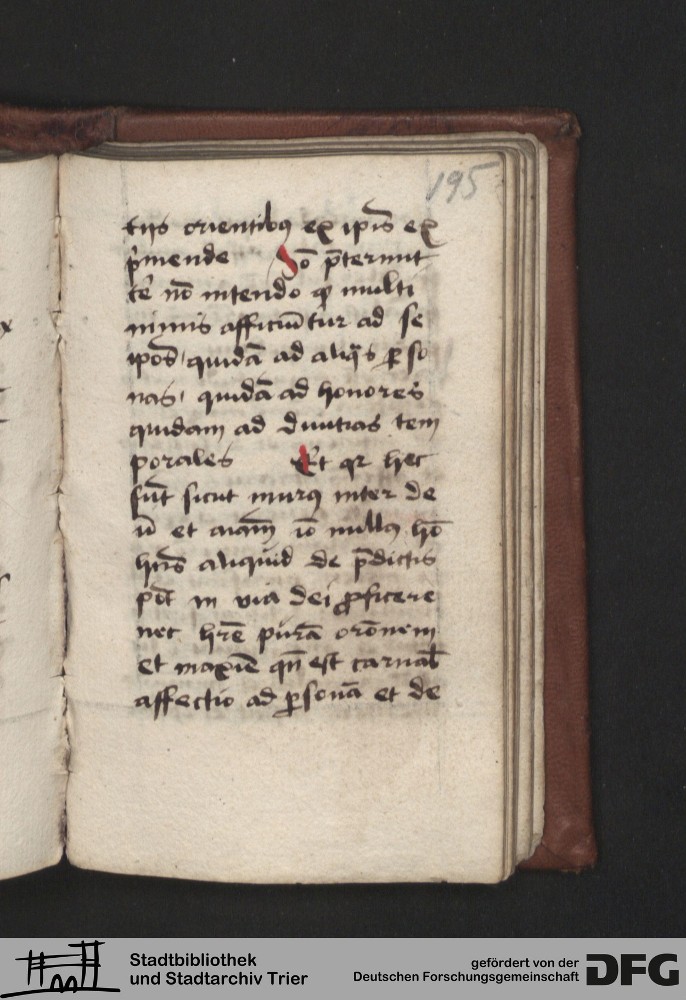 195
tijs orientibꝰ ex ip̄is ex
p̄mende Jō p̄termit
tē nō intendo qͥ multi
nimis afficiūtur ad se
ipos quidā ad aliqͣs ꝑso
nas quidā ad honores
quidam ad diuitias tem
porales Et qꝛ hec
sūt sicut murꝰ inter de
ū et aīam iō nullꝰ hō
hn̄s aliquid de p̄dictis
pōt in via dei ꝓficere
nec hr̄e purā orōnem
et maxīe qn̄ est carnal̄
affectio ad ꝑsonā et de
Stadtbibliothek
und Stadtarchiv Trier
gefördert von der
Deutschen Forschungsgemeinschaft
DFG